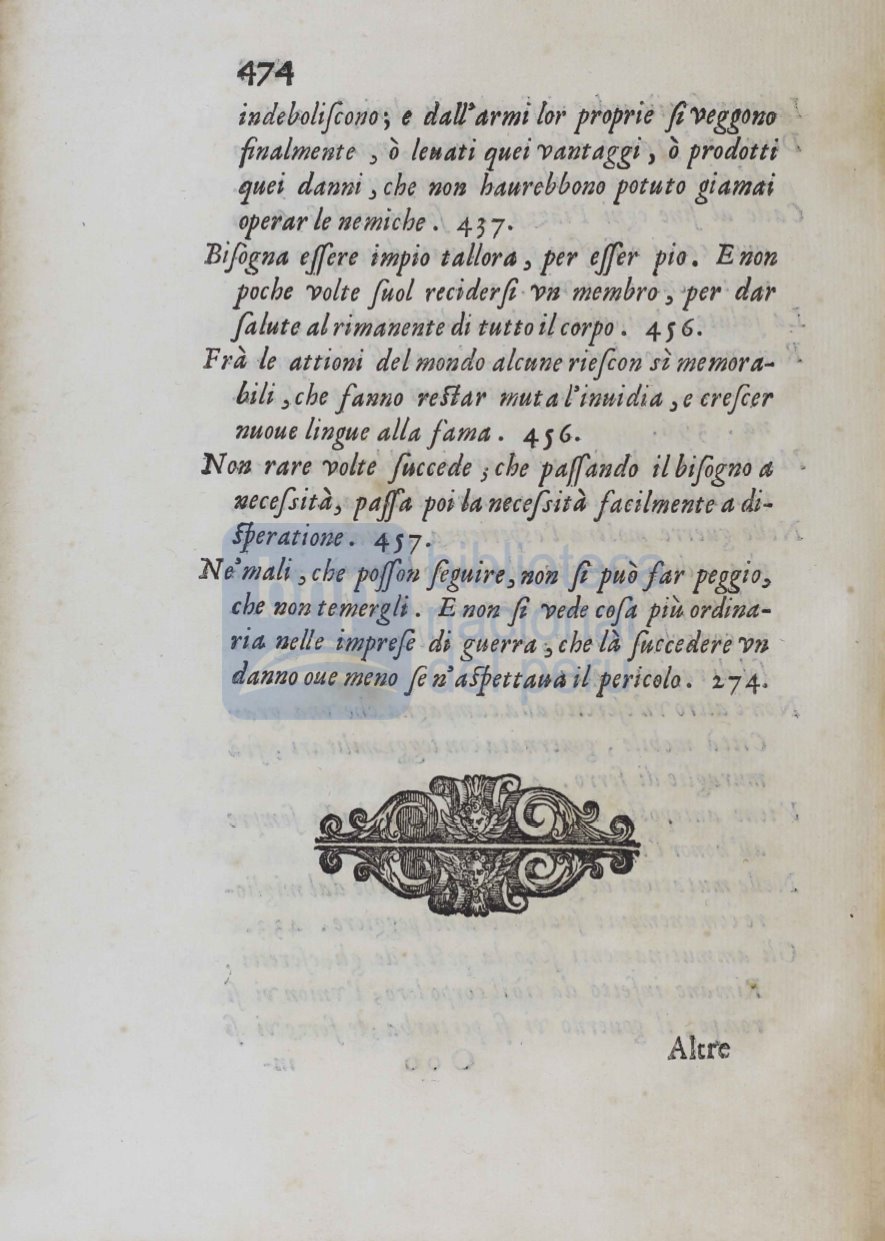 474
indeboliſcono; e dall'armi lor proprie ſi veggono
finalmente, ò leuati quei vantaggi, ò prodotti
quei danni, che non haurebbono potuto giamai
operar le nemiche. 437.
Biſogna eſſere impio tallora, per eſſer pio. E non
poche volte ſuol reciderſi vn membro, per dar
ſalute al rimanente di tutto il corpo. 456.
Frà le attioni del mondo alcune rieſcon sì memora-
bili, che fanno reſtar muta l'inuidia, e creſcer
nuoue lingue alla fama. 456.
Non rare volte ſuccede; che paſſando il biſogno a
neceſsità, paſſa poi la neceſsità facilmente a di-
ſperatione. 457.
Ne'mali, che poſſon ſeguire, non ſi può far peggio,
che non temergli. E non ſi vede coſa più ordina-
ria nelle impreſe di guerra, che là ſuccedere vn
danno oue meno ſe n'aſpettaua il pericolo. 274.
Altre